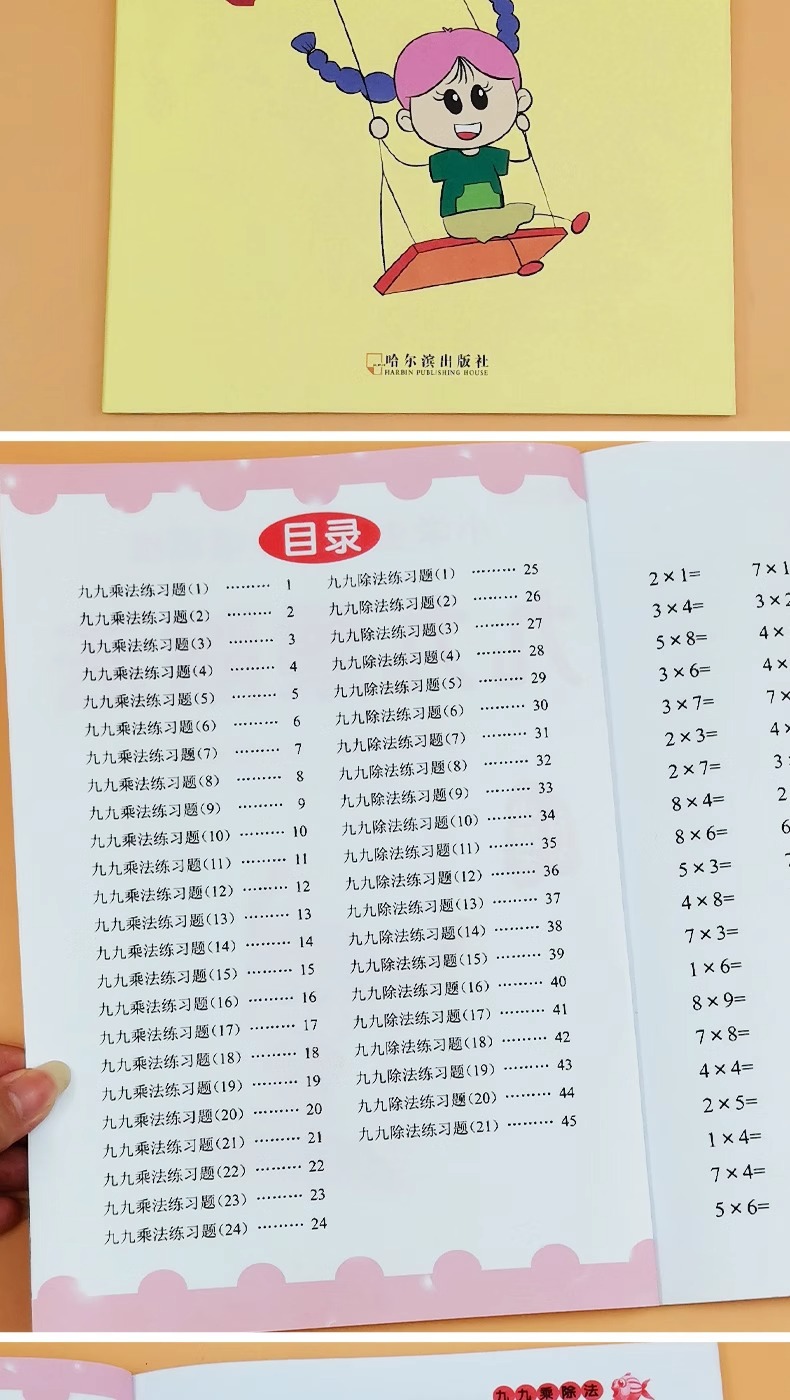 哈尔滨出版社
HARBIN PUBLISHING HOUSE
目录
九九乘法练习题(1) ……… 1
九九乘法练习题(2) ……… 2
九九乘法练习题(3) ……… 3
九九乘法练习题(4) ……… 4
九九乘法练习题(5) ……… 5
九九乘法练习题(6) ……… 6
九九乘法练习题(7) ……… 7
九九乘法练习题(8) ……… 8
九九乘法练习题(9) ……… 9
九九乘法练习题(10) ……… 10
九九乘法练习题(11) ……… 11
九九乘法练习题(12) ……… 12
九九乘法练习题(13) ……… 13
九九乘法练习题(14) ……… 14
九九乘法练习题(15) ……… 15
九九乘法练习题(16) ……… 16
九九乘法练习题(17) ……… 17
九九乘法练习题(18) ……… 18
九九乘法练习题(19) ……… 19
九九乘法练习题(20) ……… 20
九九乘法练习题(21) ……… 21
九九乘法练习题(22) ……… 22
九九乘法练习题(23) ……… 23
九九乘法练习题(24) ……… 24
九九除法练习题(1) ……… 25
九九除法练习题(2) ……… 26
九九除法练习题(3) ……… 27
九九除法练习题(4) ……… 28
九九除法练习题(5) ……… 29
九九除法练习题(6) ……… 30
九九除法练习题(7) ……… 31
九九除法练习题(8) ……… 32
九九除法练习题(9) ……… 33
九九除法练习题(10) ……… 34
九九除法练习题(11) ……… 35
九九除法练习题(12) ……… 36
九九除法练习题(13) ……… 37
九九除法练习题(14) ……… 38
九九除法练习题(15) ……… 39
九九除法练习题(16) ……… 40
九九除法练习题(17) ……… 41
九九除法练习题(18) ……… 42
九九除法练习题(19) ……… 43
九九除法练习题(20) ……… 44
九九除法练习题(21) ……… 45
2×1= 7×1
3×4= 3×2
5×8= 4×
3×6= 4×
3×7= 7×
2×3= 4×
2×7= 3
8×4= 2
8×6= 6
5×3=
4×8=
7×3=
1×6=
8×9=
7×8=
4×4=
2×5=
1×4=
7×4=
5×6=
九九乘除法